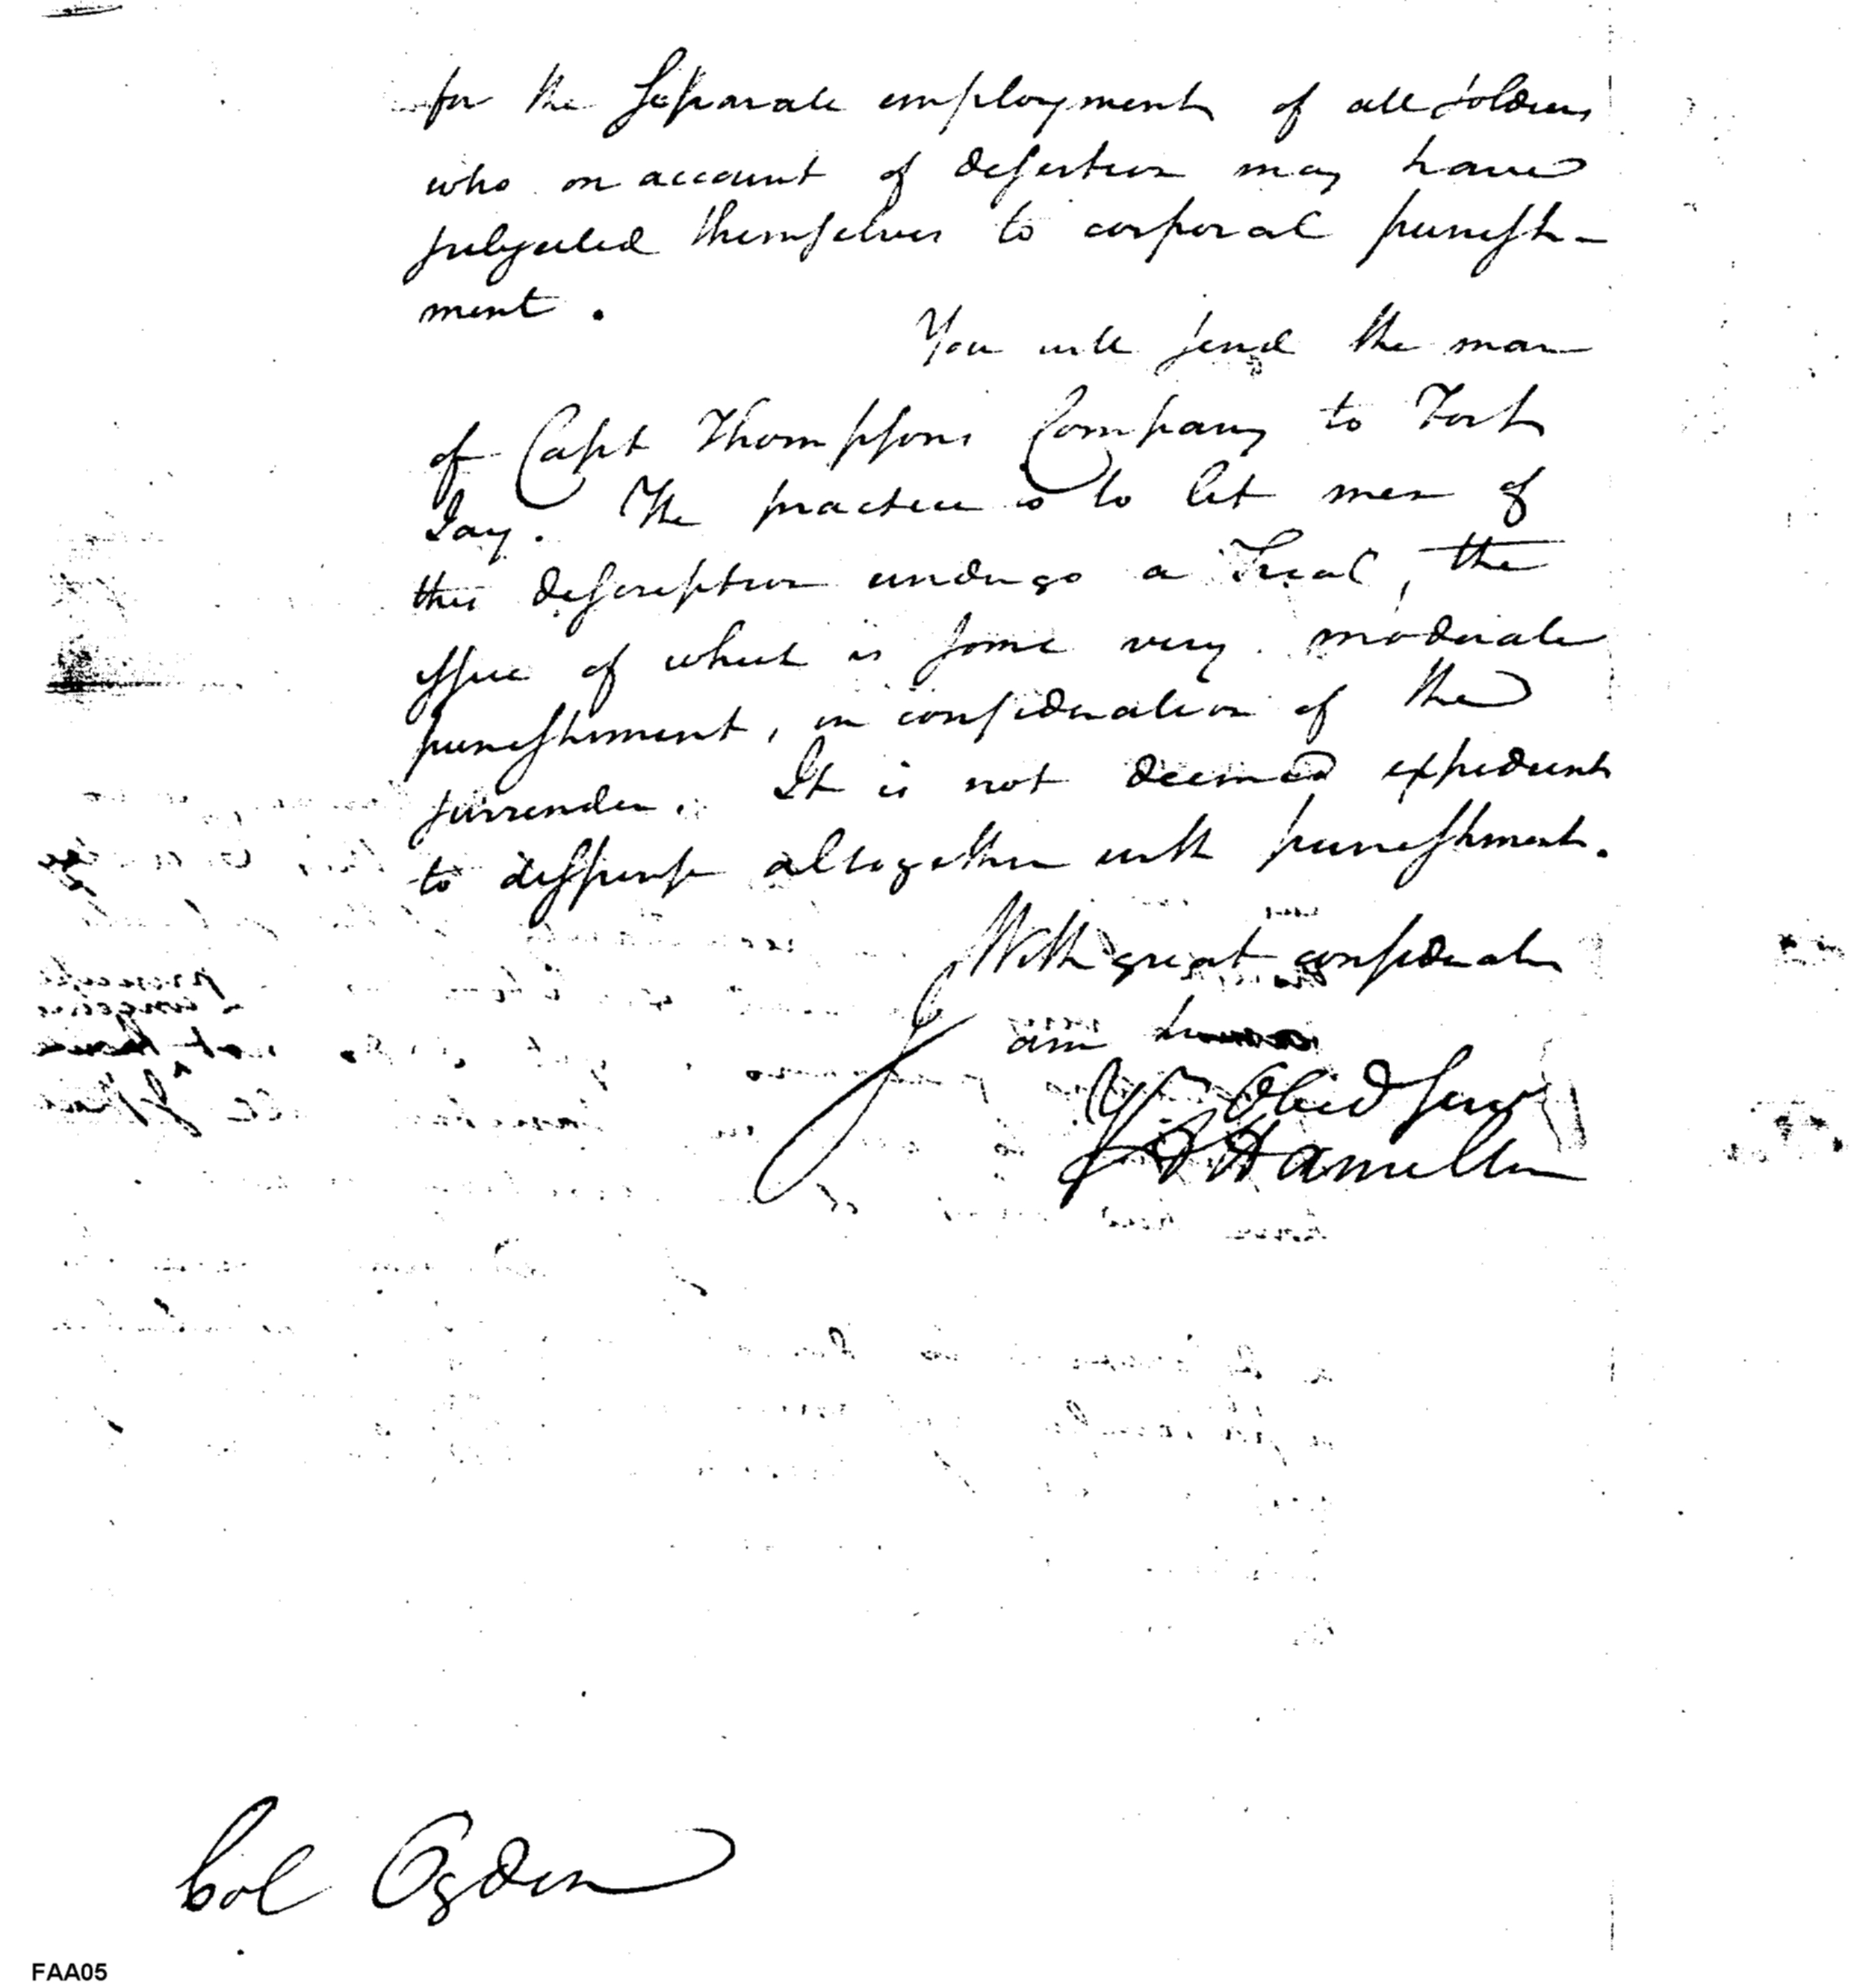 for the Separate employment of all soldiers
who on account of desertion may have
subjected themselves to corporal punish-
ment.
You will send the man
of Capt Thompsons Company to Fort
Jay. The practice is to let men of
this description undergo a Trial, the
issue of which is some very moderate
punishment, in consideration of the
surrender. It is not deemed expedient
to dispense altogether with punishment.
With great consideration
I am
Yr Obed Serv
A Hamilton
Col Ogden
FAA05